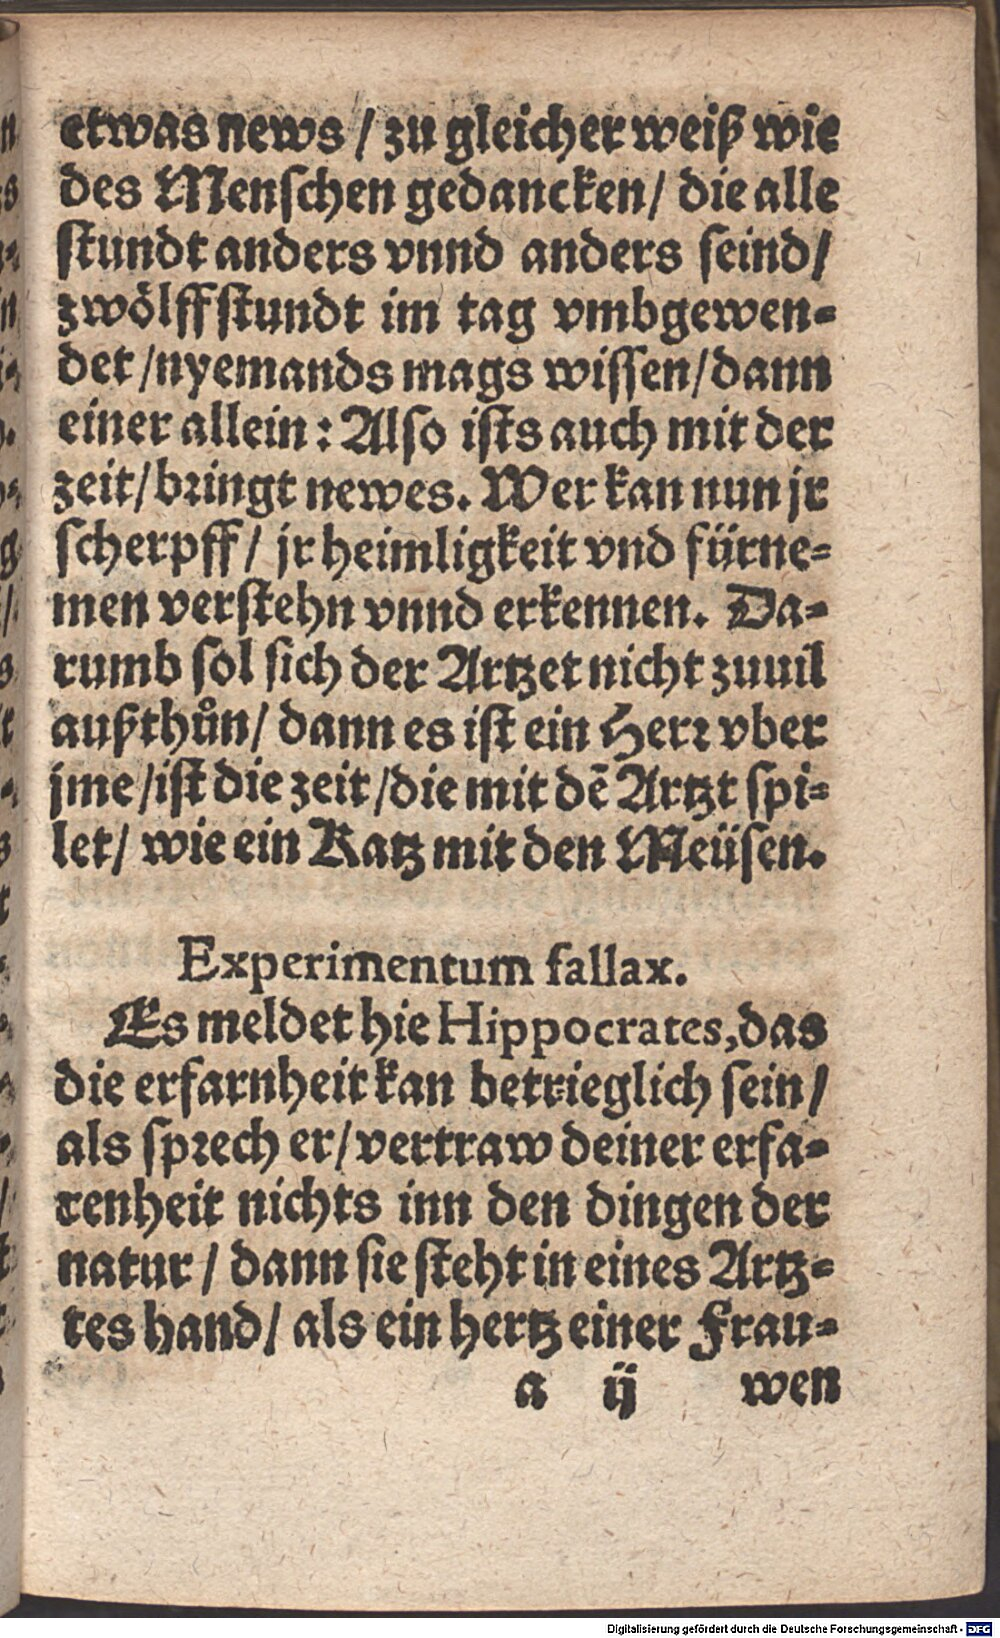 etwas news / zu gleicher weiß wie
des Menschen gedancken / die alle
stundt anders vnnd anders seind /
zwölff stundt im tag vmbgewen-
det / nyemands mags wissen / dann
einer allein : Also ists auch mit der
zeit / bringt newes. Wer kan nun jr
scherpff / jr heimligkeit vnd fürne-
men verstehn vnnd erkennen. Da-
rumb sol sich der Artzet nicht zuuil
außthůn / dann es ist ein Herr vber
jme / ist die zeit / die mit dē Artzt spi-
let / wie ein Katz mit den Meüsen.
Experimentum fallax.
Es meldet hie Hippocrates, das
die erfarnheit kan betrieglich sein /
als sprech er / vertraw deiner erfa-
renheit nichts inn den dingen der
natur / dann sie steht in eines Artz-
tes hand / als ein hertz einer Frau-
a ij wen
Digitalisierung gefördert durch die Deutsche Forschungsgemeinschaft - DFG